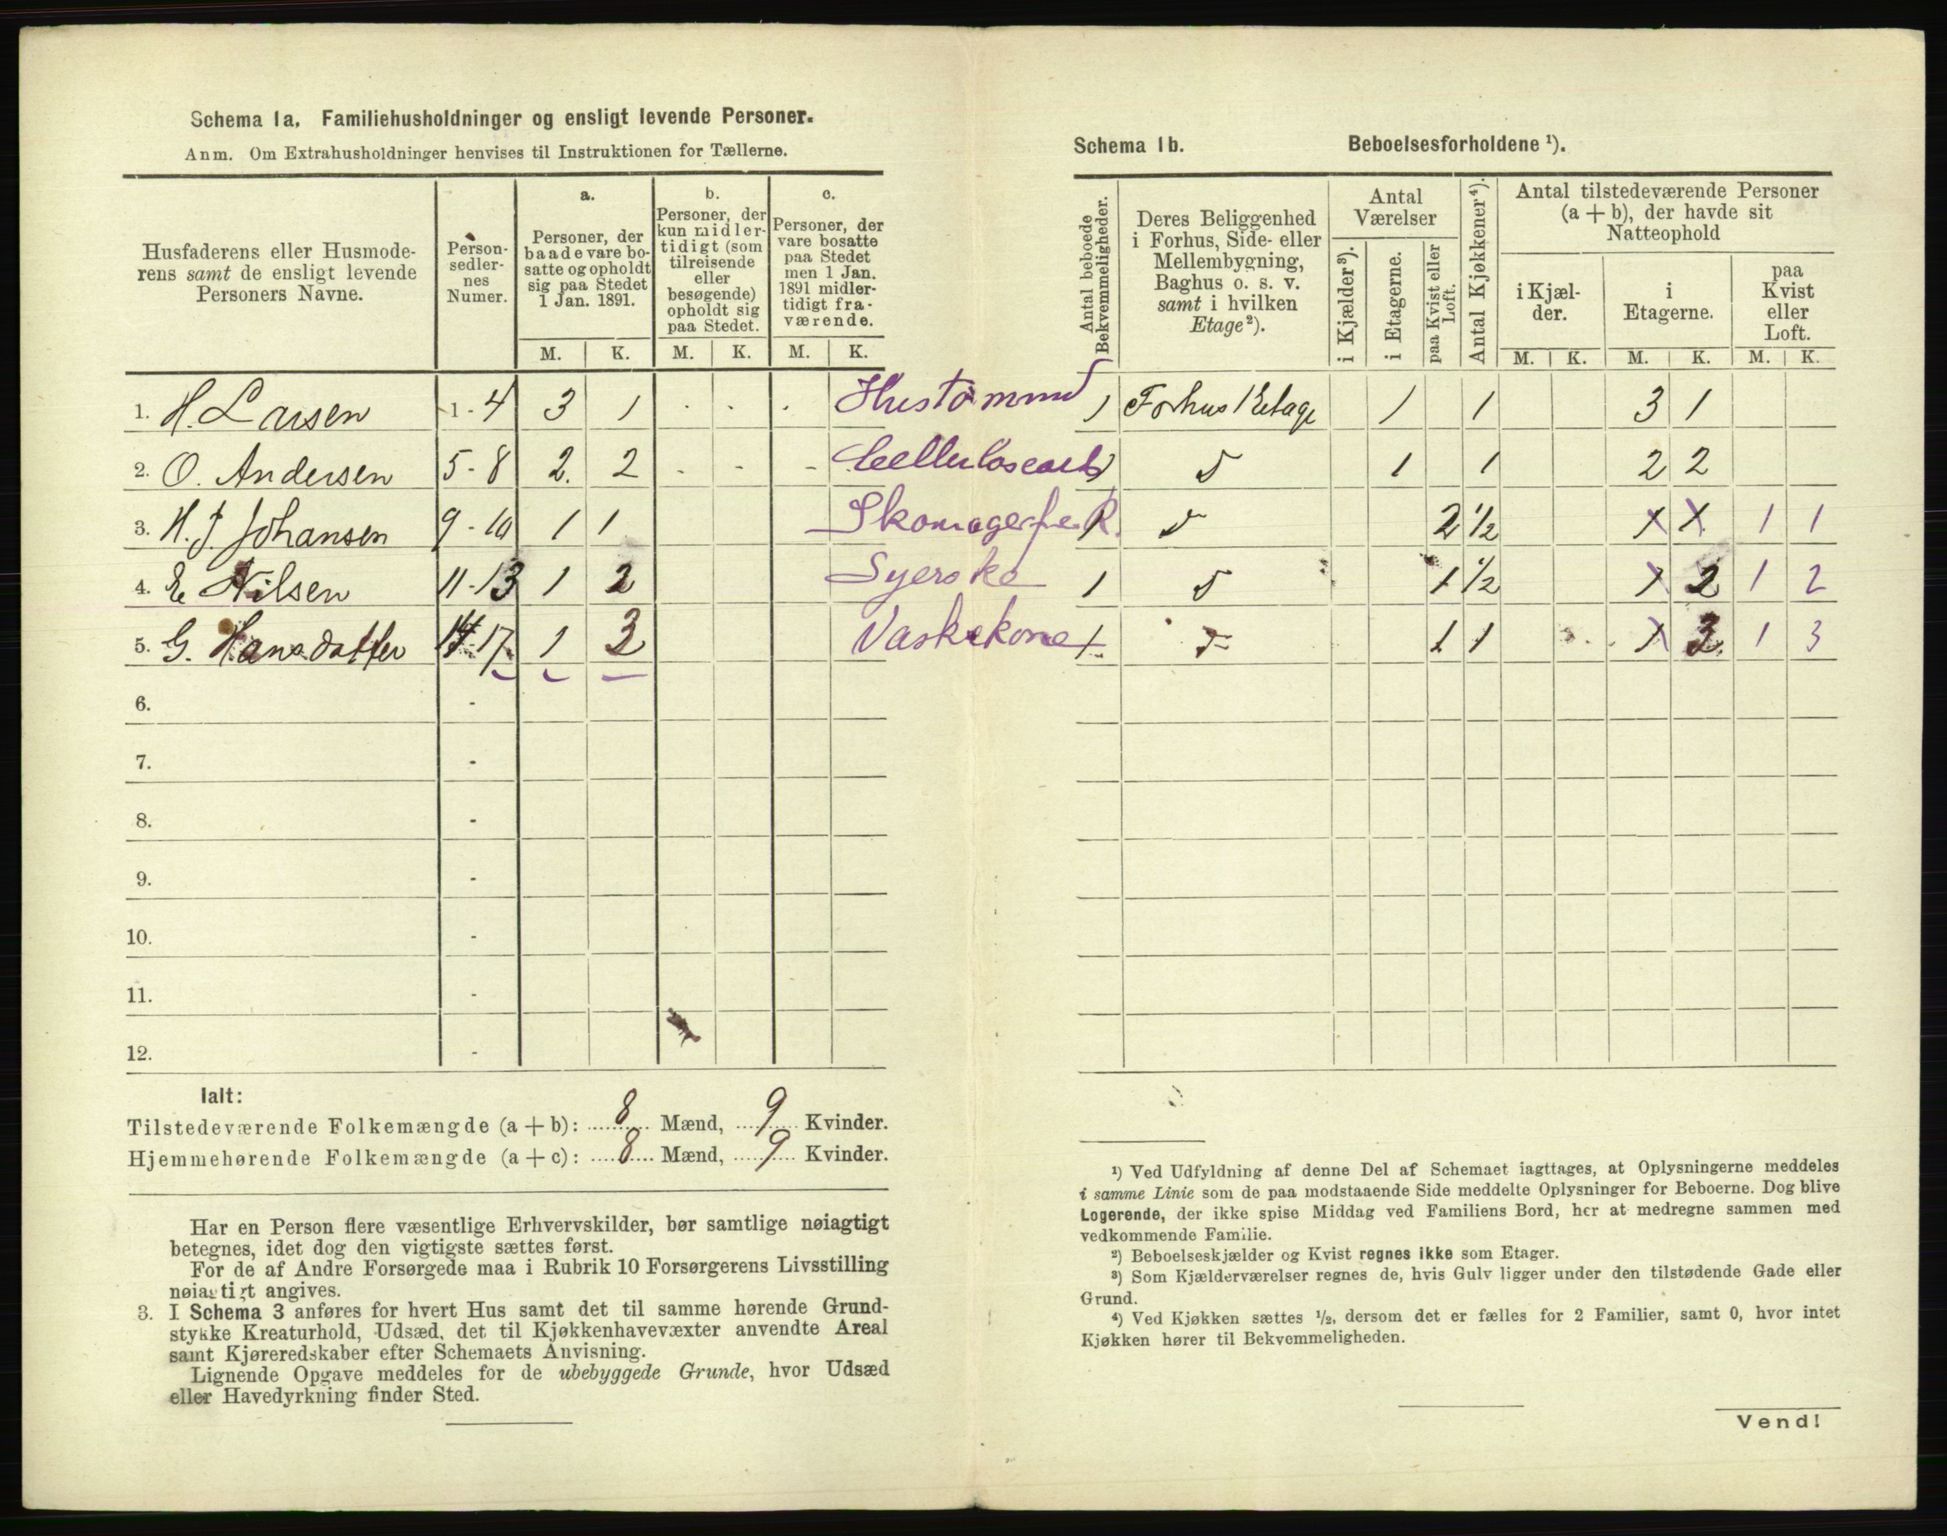 Schema 1a. Familiehusholdninger og ensligt levende Personer.
Anm. Om Extrahusholdninger henvises til Instruktionen for Tællerne.
Husfaderens eller Husmoderens samt de ensligt levende Personers Navne.
Personsedlernes Numer.
a.
Personer, der baade vare bosatte og opholdt sig paa Stedet 1 Jan. 1891.
b.
Personer, der kun midlertidigt (som tilreisende eller besøgende) opholdt sig paa Stedet.
c.
Personer, der vare bosatte paa Stedet men 1 Jan. 1891 midlertidigt fraværende.
M. K. M. K. M. K.
1. H. Larsen 1-4 3 1 . . .
2. O. Andersen 5-8 2 2 . . .
3. H. J. Johansen 9-10 1 1
4. E. Nilsen 11-13 1 2 Syerske
5. G. Hansdatter 14-17 1 3 Vaskekone
6. -
7. -
8. -
9. -
10. -
11. -
12. -
Ialt:
Tilstedeværende Folkemængde (a + b): 8 Mænd, 9 Kvinder.
Hjemmehørende Folkemængde (a + c): 8 Mænd, 9 Kvinder.
Har en Person flere væsentlige Erhvervskilder, bør samtlige nøiagtigt
betegnes, idet dog den vigtigste sættes først.
For de af Andre Forsørgede maa i Rubrik 10 Forsørgerens Livsstilling
nøiagtigt angives.
3. I Schema 3 anføres for hvert Hus samt det til samme hørende Grund-
stykke Kreaturhold, Udsæd, det til Kjøkkenhavevæxter anvendte Areal
samt Kjøreredskaber efter Schemaets Anvisning.
Lignende Opgave meddeles for de ubebyggede Grunde, hvor Udsæd
eller Havedyrkning finder Sted.
Schema 1b. Beboelsesforholdene ¹).
Antal beboede Bekvemmeligheder.
Deres Beliggenhed i Forhus, Side- eller Mellembygning, Baghus o. s. v. samt i hvilken Etage²).
Antal Værelser
i Kjælder³).
i Etagerne.
paa Kvist eller Loft.
Antal Kjøkkener⁴).
Antal tilstedeværende Personer (a + b), der havde sit Natteophold
i Kjælder.
i Etagerne.
paa Kvist eller Loft.
M. K. M. K. M. K.
1 Forhus 1 Etage 1 1 3 1
1 1 2 2
2 ½ 1 1
1 1 ½ 2 1 2
1 1 1 3 1 3
¹) Ved Udfyldning af denne Del af Schemaet iagttages, at Oplysningerne meddeles
i samme Linie som de paa modstaaende Side meddelte Oplysninger for Beboerne. Dog blive
Logerende, der ikke spise Middag ved Familiens Bord, her at medregne sammen med
vedkommende Familie.
²) Beboelseskjælder og Kvist regnes ikke som Etager.
³) Som Kjælderværelser regnes de, hvis Gulv ligger under den tilstødende Gade eller
Grund.
⁴) Ved Kjøkken sættes ½, dersom det er fælles for 2 Familier, samt 0, hvor intet
Kjøkken hører til Bekvemmeligheden.
Vend!